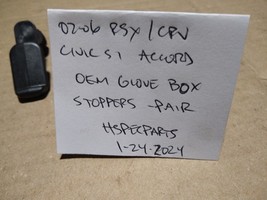 02-06 RSX/CRV
CIVIC SI ACCORD
OEM GLOVE BOX
STOPPERS -PAIR
HSPECPARTS
1-24-2024